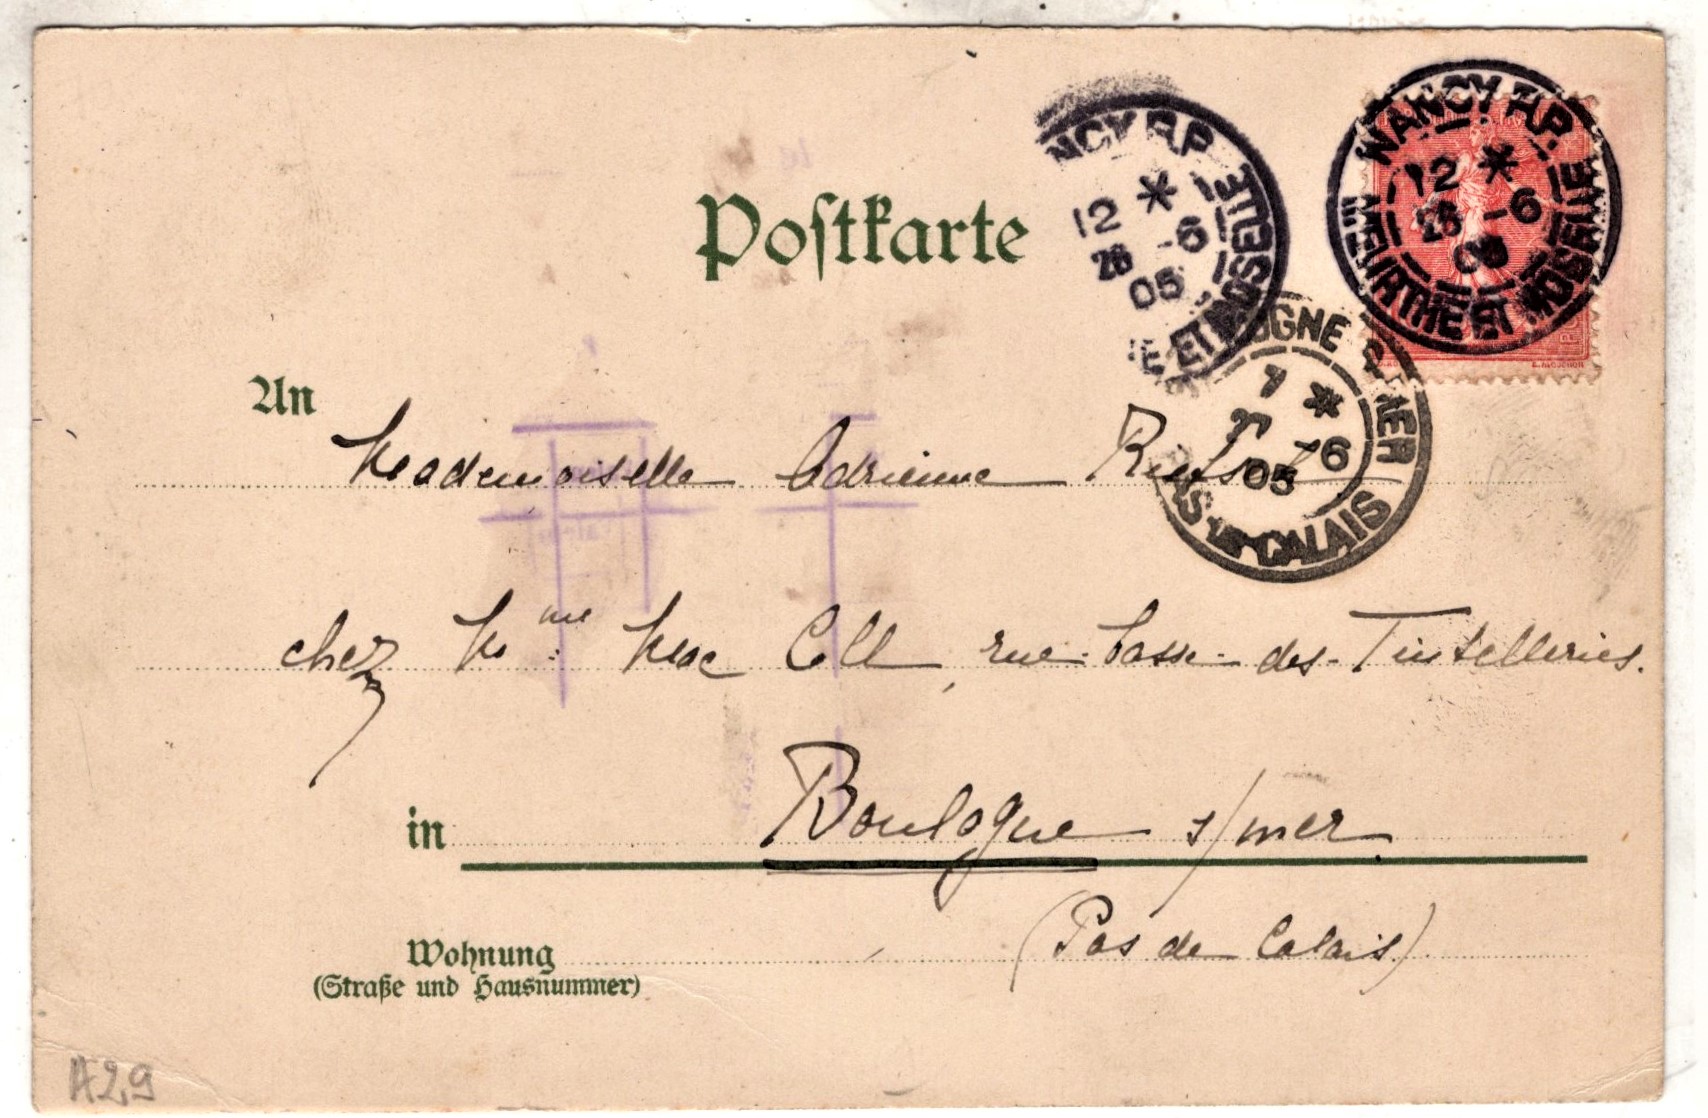 Postkarte
NANCY R.P.
12 *
26 -6
05
MEURTHE ET MOSELLE
NCY R.P.
12 *
26 -6
05
E ET MOSELLE
OGNE S MER
7 *
27 -6
05
PAS DE CALAIS
E. MOUCHON
An
Mademoiselle Adrienne
chez Mme Mac Coll, rue basse des Tintelleries.
in Boulogne s/mer
(Pas de Calais)
Wohnung
(Straße und Hausnummer)
A29